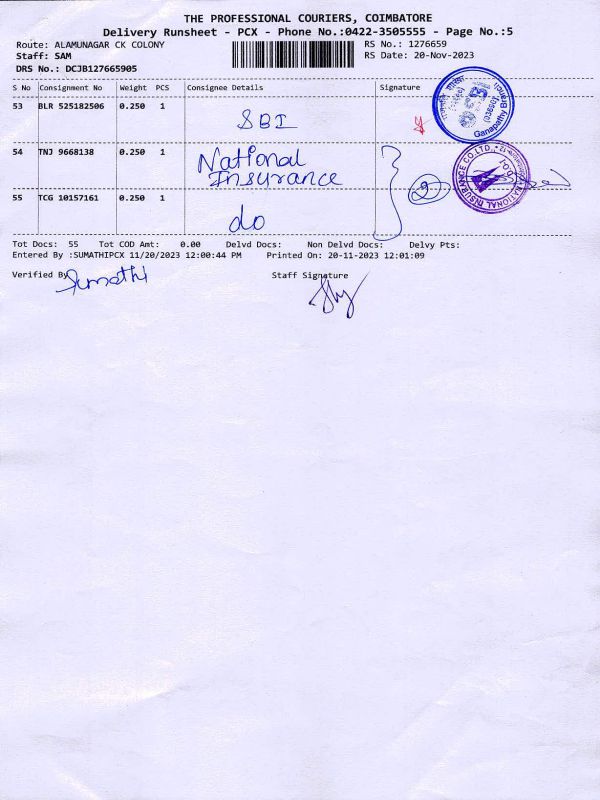 THE PROFESSIONAL COURIERS, COIMBATORE
Delivery Runsheet - PCX - Phone No.:0422-3505555 - Page No.:5
Route: ALAMUNAGAR CK COLONY RS No.: 1276659
Staff: SAM RS Date: 20-Nov-2023
DRS No.: DCJB127665905
S No Consignment No Weight PCS Consignee Details Signature
53 BLR 525182506 0.250 1 SBI
Ganapathy Branch
54 TNJ 9668138 0.250 1 National
Insurance
2
NATIONAL INSURANCE CO.LTD.
55 TCG 10157161 0.250 1 do
Tot Docs: 55 Tot COD Amt: 0.00 Delvd Docs: Non Delvd Docs: Delvy Pts:
Entered By :SUMATHIPCX 11/20/2023 12:00:44 PM Printed On: 20-11-2023 12:01:09
Verified By Sumathi Staff Signature